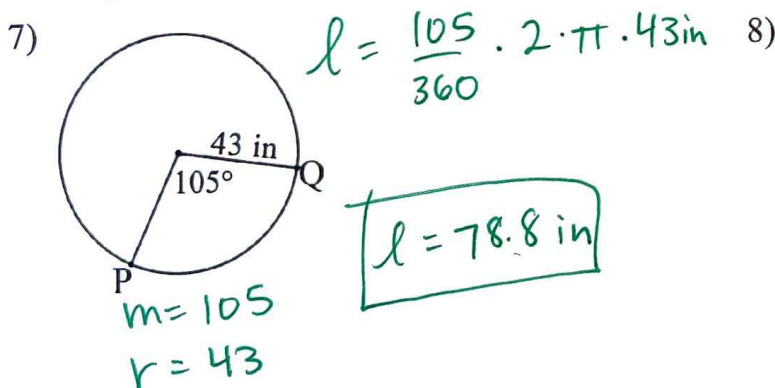 7)
l = 105/360 · 2 · π · 43in
8)
43 in
105°
Q
P
l = 78.8 in
m = 105
r = 43